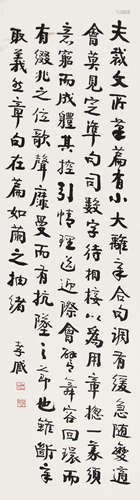 夫裁文匠筆篇有小大離章合句調有緩急隨變適
會莫見定準句司數字待相接以為用章總一義須
意窮而成體其控引情理送迎際會譬舞容回環而
有綴兆之位歌聲靡曼而有抗墜之節也雖斷章
取義然章句在篇如繭之抽緒 孝臧